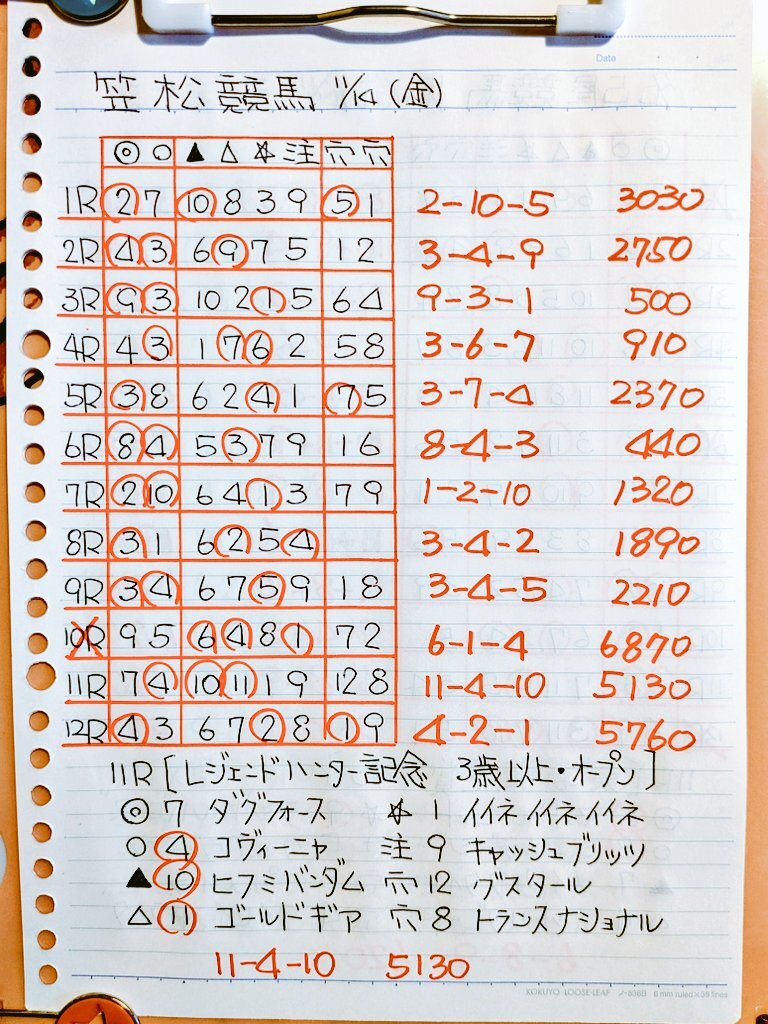 Date
笠松競馬 11/14(金)
◎ ○ ▲ △ ☆ 注 穴 穴
1R 2 7 10 8 3 9 5 1 2-10-5 3030
2R 4 3 6 9 7 5 1 2 3-4-9 2750
3R 9 3 10 2 1 5 6 4 9-3-1 500
4R 4 3 1 7 6 2 5 8 3-6-7 910
5R 3 8 6 2 4 1 7 5 3-7-4 2370
6R 8 4 5 3 7 9 1 6 8-4-3 440
7R 2 10 6 4 1 3 7 9 1-2-10 1320
8R 3 1 6 2 5 4 3-4-2 1890
9R 3 4 6 7 5 9 1 8 3-4-5 2210
10R 9 5 6 4 8 1 7 2 6-1-4 6870
11R 7 4 10 11 1 9 12 8 11-4-10 5130
12R 4 3 6 7 2 8 1 9 4-2-1 5760
11R [レジェンドハンター記念 3歳以上・オープン]
◎ 7 ダグフォース ☆ 1 イイネイイネイイネ
○ 4 コヴィーニャ 注 9 キャッシュブリッツ
▲ 10 ヒフミバンダム 穴 12 グスタール
△ 11 ゴールドギア 穴 8 トランスナショナル
11-4-10 5130
KOKUYO LOOSE-LEAF ノ-836B 6 mm ruled×35 lines